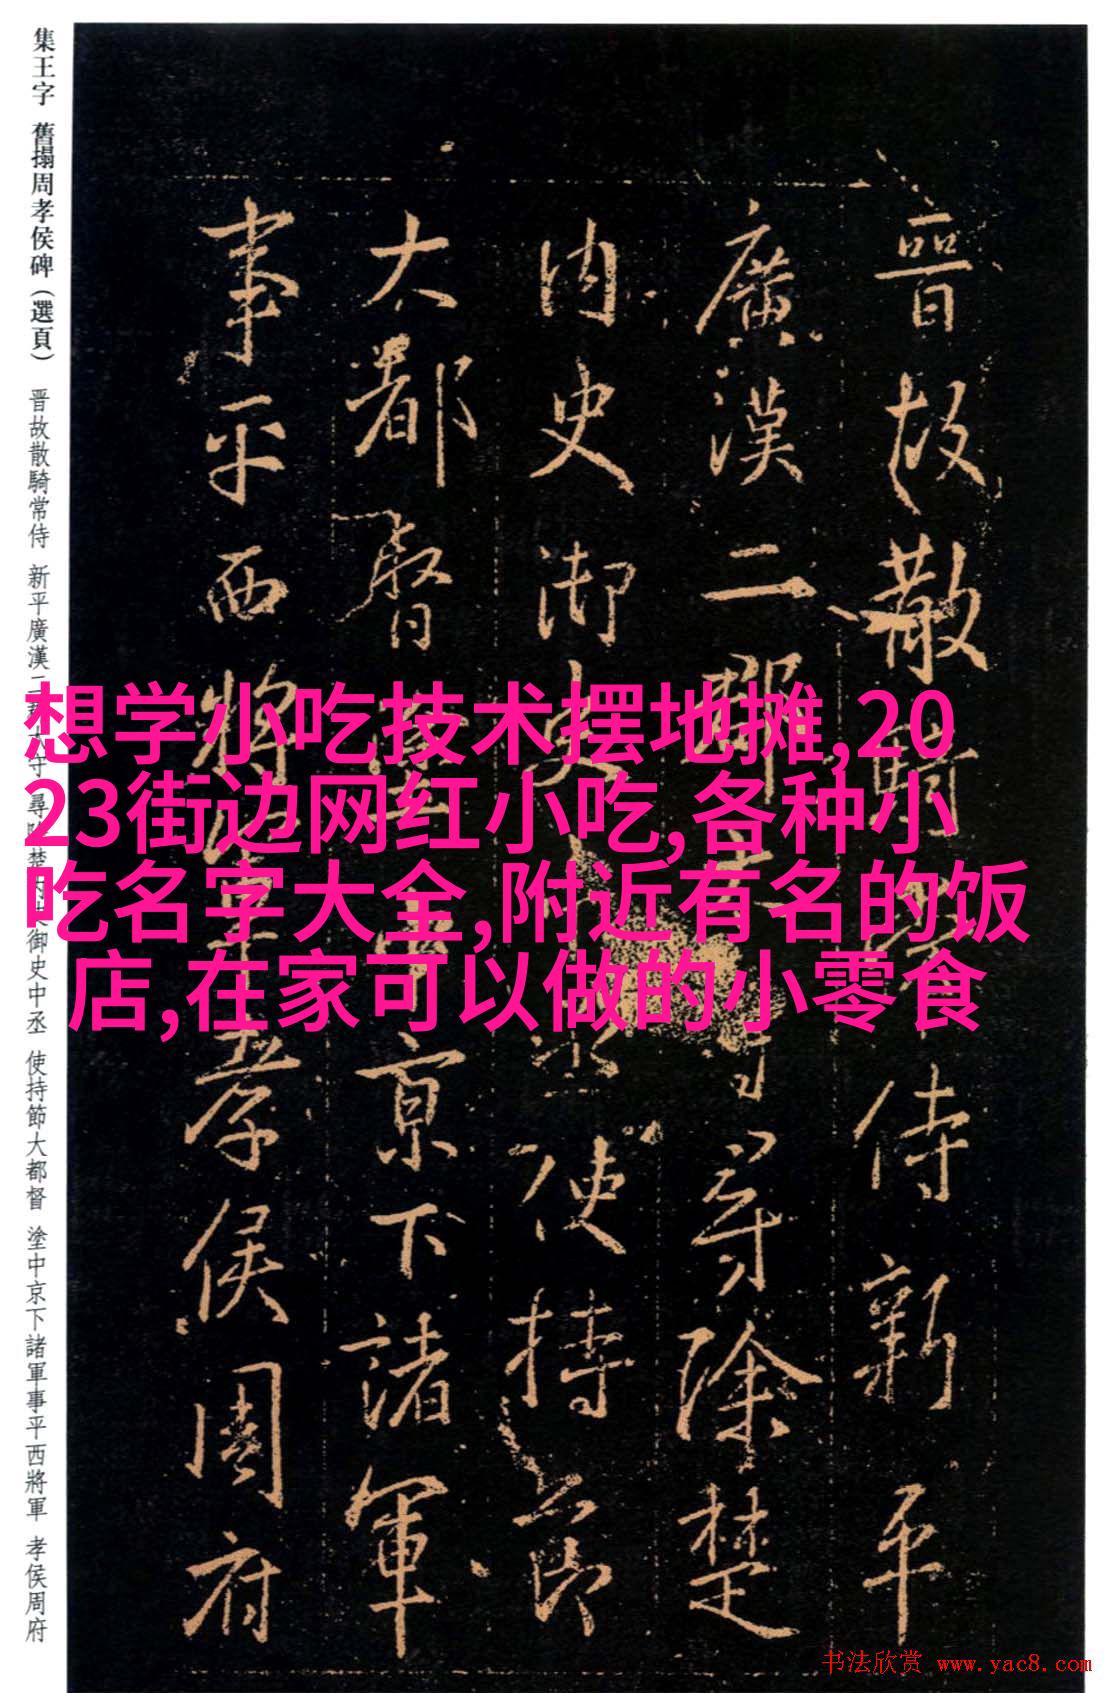 集王字 舊搨周孝侯碑（選頁） 晋故散騎常侍 新平廣漢二郡 守 尋 楚 御史中丞 使持節大都督 塗中京下諸軍事平西將軍 孝侯周府
晉故散騎常侍新平
廣漢二郡 守尋除楚
内史御史中丞使持節
大都督塗中京下諸軍
事平西將軍孝侯周府
想学小吃技术摆地摊,20
23街边网红小吃,各种小
吃名字大全,附近有名的饭
店,在家可以做的小零食
书法欣赏 www.yac8.com